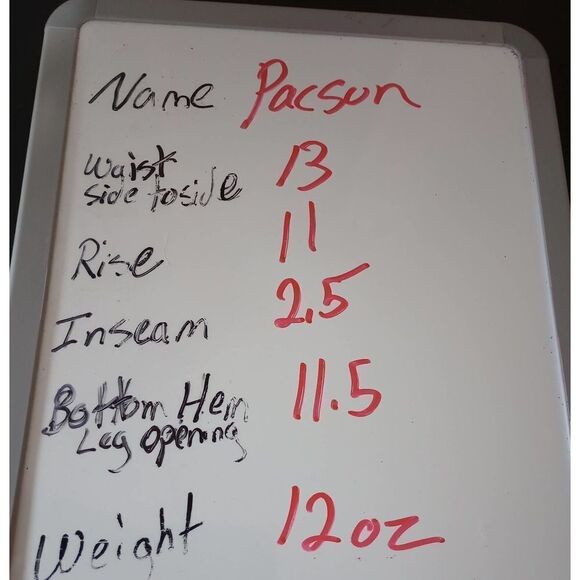 Name Pacsun
Waist
side to side 13
Rise 11
Inseam 2.5
Bottom Hem
Leg opening 11.5
Weight 12oz